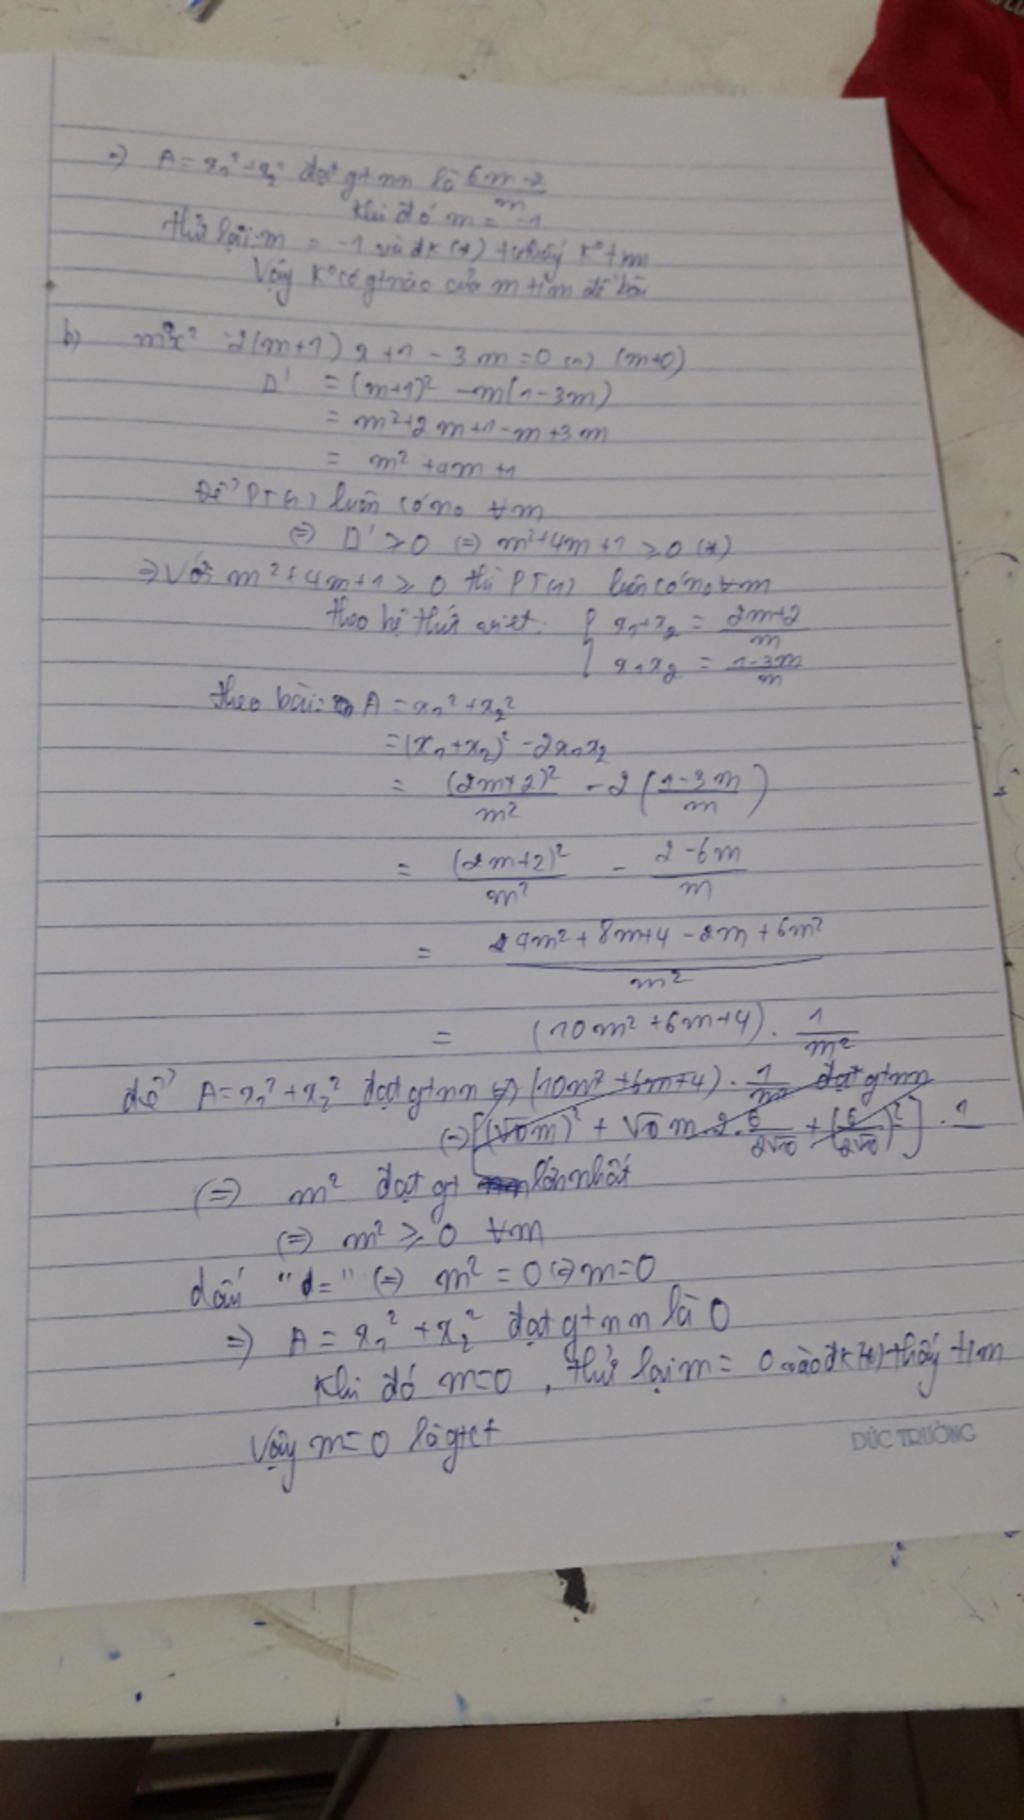 =) A = x₁² + x₂² đạt gtnn là (6m-2)/m
Khi đó m = -1
thử lại: m = -1 vào đk (*) thấy k° tm
Vậy k° có gt nào của m t/m đề bài
b) mx² - 2(m+1)x + 1 - 3m = 0 (1) (m≠0)
Δ' = (m+1)² - m(1-3m)
= m² + 2m + 1 - m + 3m
= m² + 4m + 1
Để PT(1) luôn có no ∀m
(=) Δ' ≥ 0 (=) m² + 4m + 1 ≥ 0 (*)
=) Với m² + 4m + 1 ≥ 0 thì PT(1) luôn có no ∀m
theo hệ thức viet: { x₁ + x₂ = (2m+2)/m
x₁x₂ = (1-3m)/m
theo bài: A = x₁² + x₂²
= (x₁ + x₂)² - 2x₁x₂
= (2m+2)²/m² - 2((1-3m)/m)
= (2m+2)²/m² - (2-6m)/m
= (4m² + 8m + 4 - 2m + 6m²)/m²
= (10m² + 6m + 4) . 1/m²
để A = x₁² + x₂² đạt gtnn (=) (10m² + 6m + 4) . 1/m² đạt gtnn
(=) [(√10m)² + √10 m . 2 . 6/(2√10) + (6/(2√10))²] . 1
(=) m² đạt gt lớn nhất
(=) m² ≥ 0 ∀m
dấu "=" (=) m² = 0 (=) m = 0
=) A = x₁² + x₂² đạt gtnn là 0
Khi đó m = 0, thử lại m = 0 vào đk (*) thấy t/m
Vậy m = 0 là gtct
ĐỨC TRƯỜNG